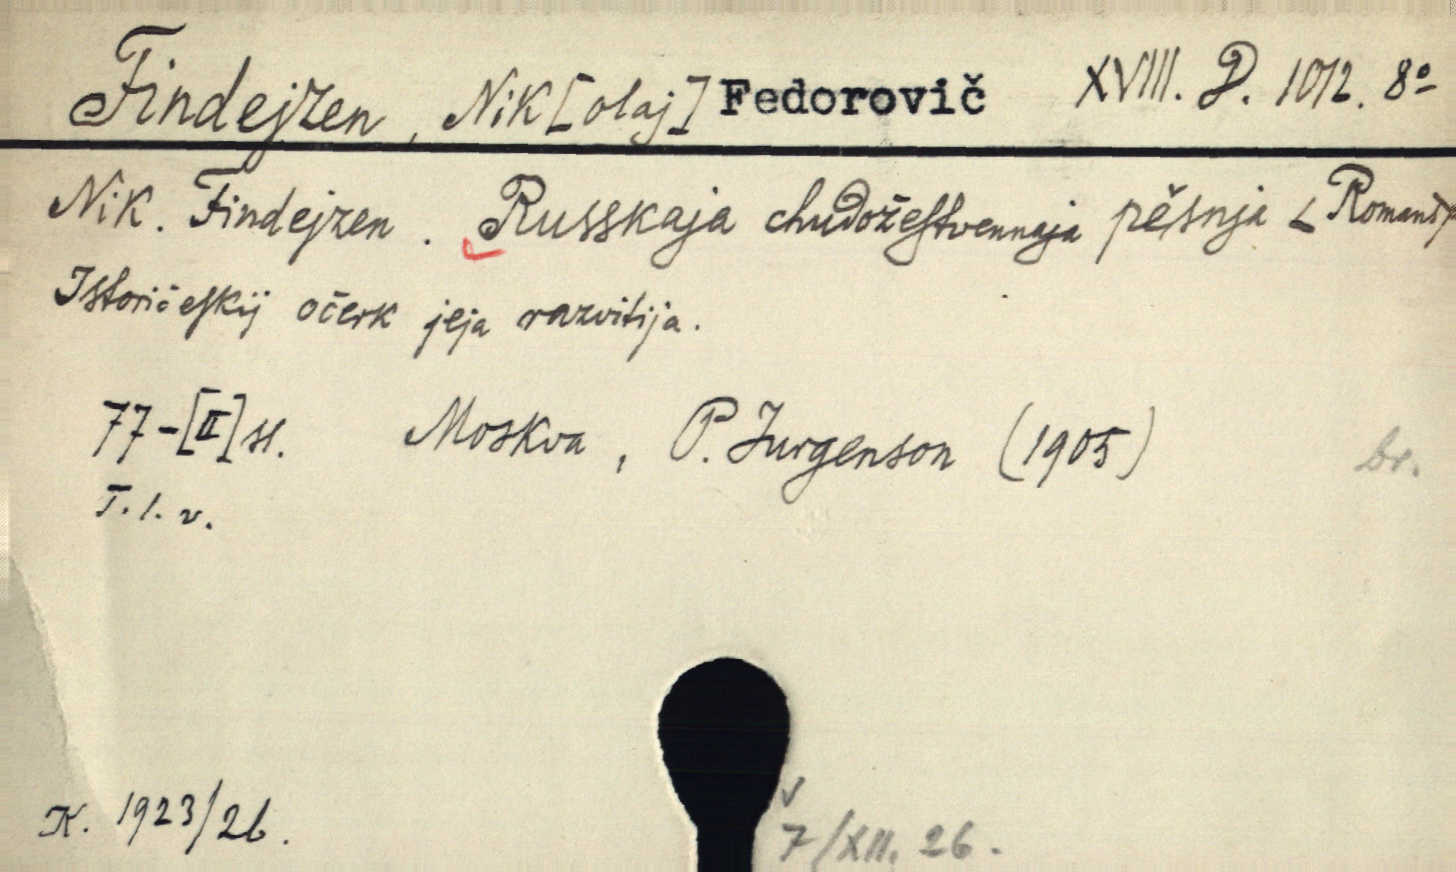 Findejzen, Nik[olaj] Fedorovič XVIII. D. 1012. 8º
Nik. Findejzen. Russkaja chudožestvennaja pěsnja <Romans>
Istoričeskij očerk jeja razvitija.
77-[II] st. Moskva, P. Jurgenson (1905) br.
T. l. v.
K. 1923/26.
7/XII. 26.